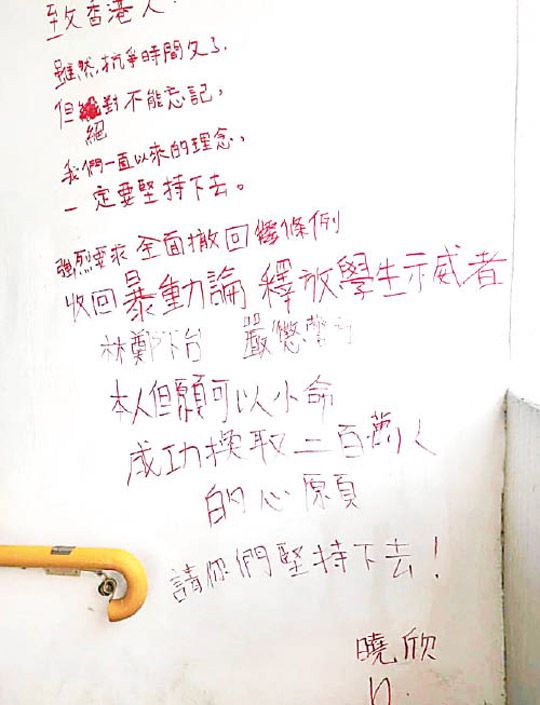 致香港人:
雖然抗爭時間久了,
但對不能忘記,
絕
我們一直以來的理念,
一定要堅持下去。
強烈要求 全面撤回條例
收回暴動論 釋放學生示威者
林鄭下台 嚴懲警
本人但願可以小命
成功換取二百萬人
的心願
請你們堅持下去!
曉欣